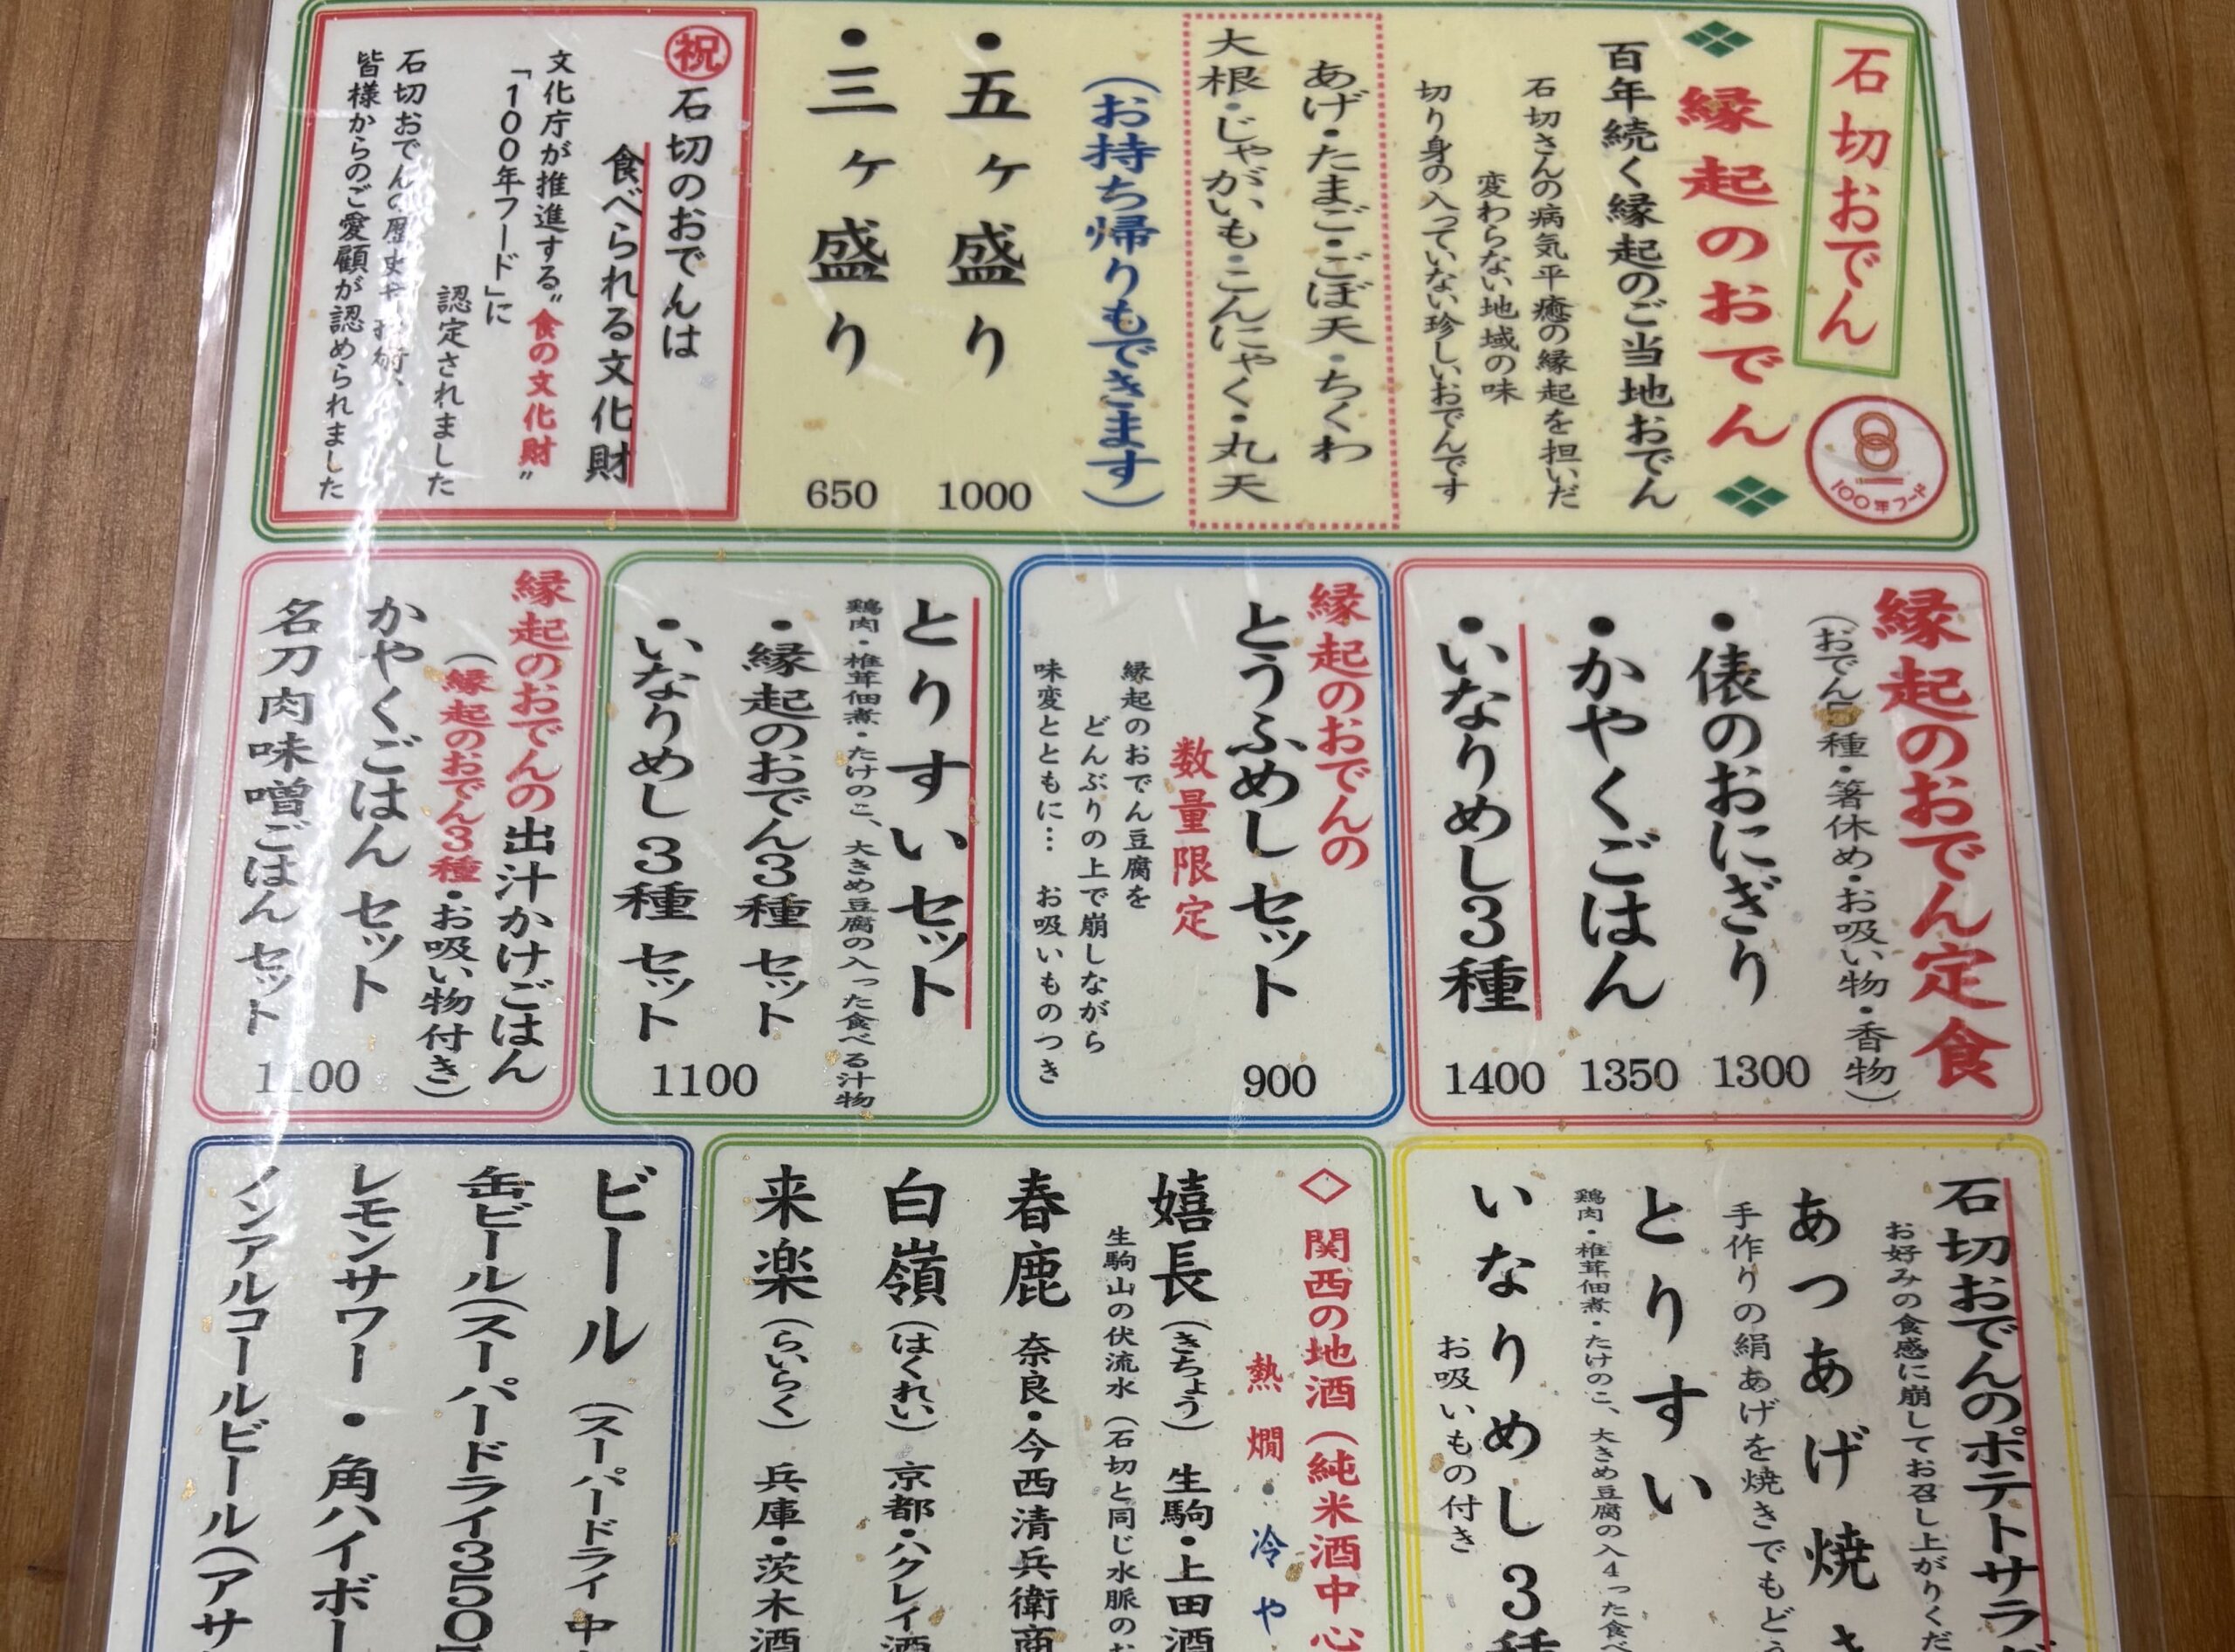 石切おでん
100年フード
縁起のおでん
百年続く縁起のご当地おでん
石切さんの病気平癒の縁起を担いだ
変わらない地域の味
切り身の入っていない珍しいおでんです
あげ・たまご・ごぼ天・ちくわ
大根・じゃがいも・こんにゃく・丸天
(お持ち帰りもできます)
・五ヶ盛り 1000
・三ヶ盛り 650
祝 石切のおでんは
食べられる文化財
文化庁が推進する"食の文化財"
「100年フード」に
認定されました
石切おでんの歴史や技術、
皆様からのご愛顧が認められました
縁起のおでん定食
(おでん5種・箸休め・お吸い物・香物)
・俵のおにぎり 1300
・かやくごはん 1350
・いなりめし3種 1400
縁起のおでんの
とうふめし セット 900
数量限定
縁起のおでん豆腐を
どんぶりの上で崩しながら
味変とともに… お吸いものつき
とりすい セット
鶏肉・椎茸佃煮・たけのこ、大きめ豆腐の入った食べる汁物
・縁起のおでん3種 セット
・いなりめし3種 セット
1100
縁起のおでんの出汁かけごはん
(縁起のおでん3種・お吸い物付き)
かやくごはん セット
名刀肉味噌ごはん セット
1100
石切おでんのポテトサラダ
お好みの食感に崩してお召し上がりくだ
あつあげ焼き
手作りの絹あげを焼きでもどう
とりすい
鶏肉・椎茸佃煮・たけのこ、大きめ豆腐の入った食べ
いなりめし3種
お吸いもの付き
◇関西の地酒(純米酒中心
熱燗・冷や
嬉長(きちょう) 生駒・上田酒
生駒山の伏流水(石切と同じ水脈のお
春鹿 奈良・今西清兵衛商
白嶺(はくれい) 京都・ハクレイ酒
来楽(らいらく) 兵庫・茨木酒
ビール (スーパードライ 中
缶ビール(スーパードライ350
レモンサワー・角ハイボー
ノンアルコールビール(アサ